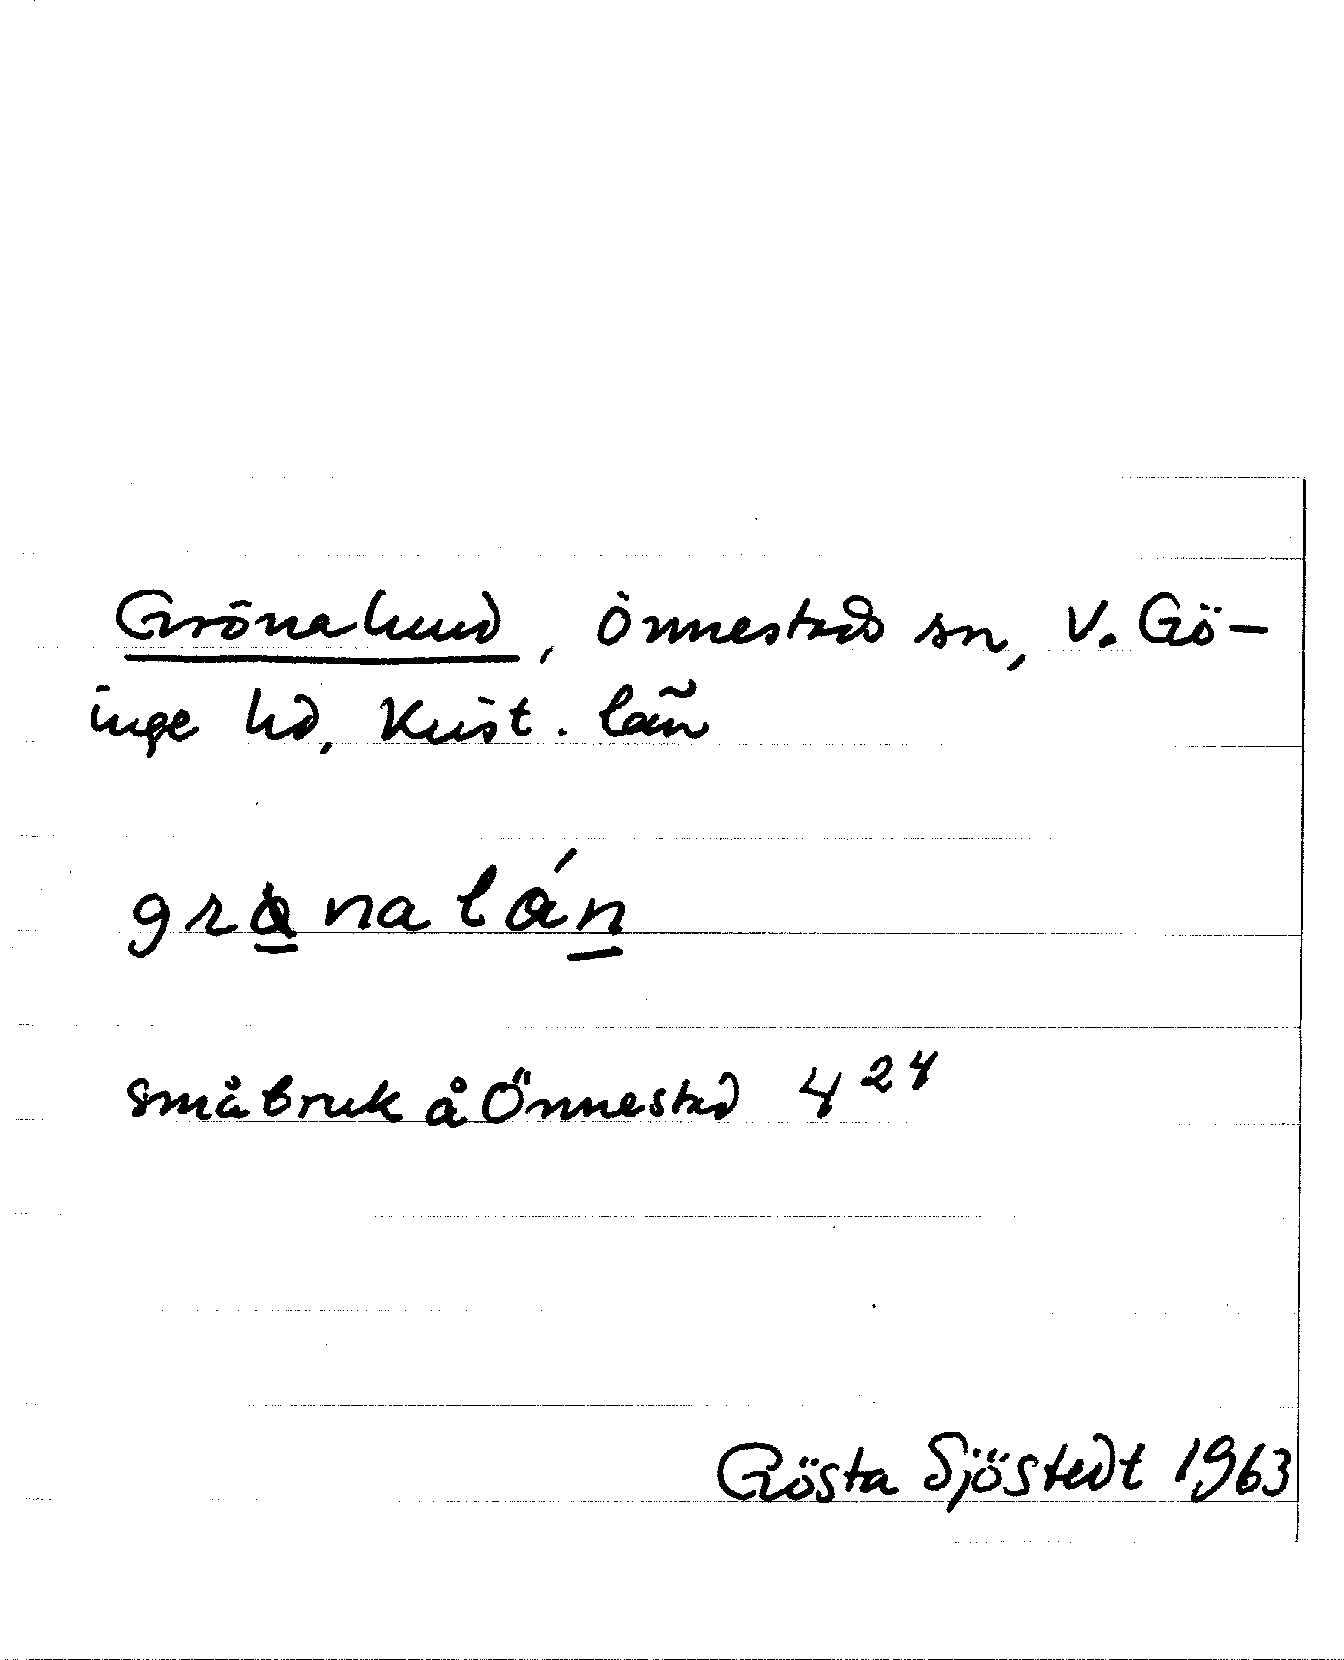 Grönalund, Önnestads sn, V. Gö-
inge hd, Krist. län
grønalán
småbruk å Önnestad 4²⁴
Gösta Sjöstedt 1963